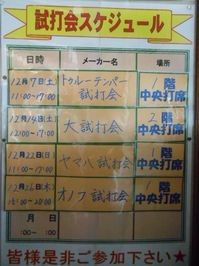 試打会スケジュール
日時 メーカー名 場所
12月7日(土) トゥルーテンパー 1階
11:00~17:00 試打会 中央打席
12月14日(土) 大試打会 2階
12:00~17:00 中央打席
12月22日(日) ヤマハ試打会 1階
11:00~17:00 中央打席
オノフ試打会 1階
中央打席
月 日
: ~ :
皆様是非ご参加下さい★